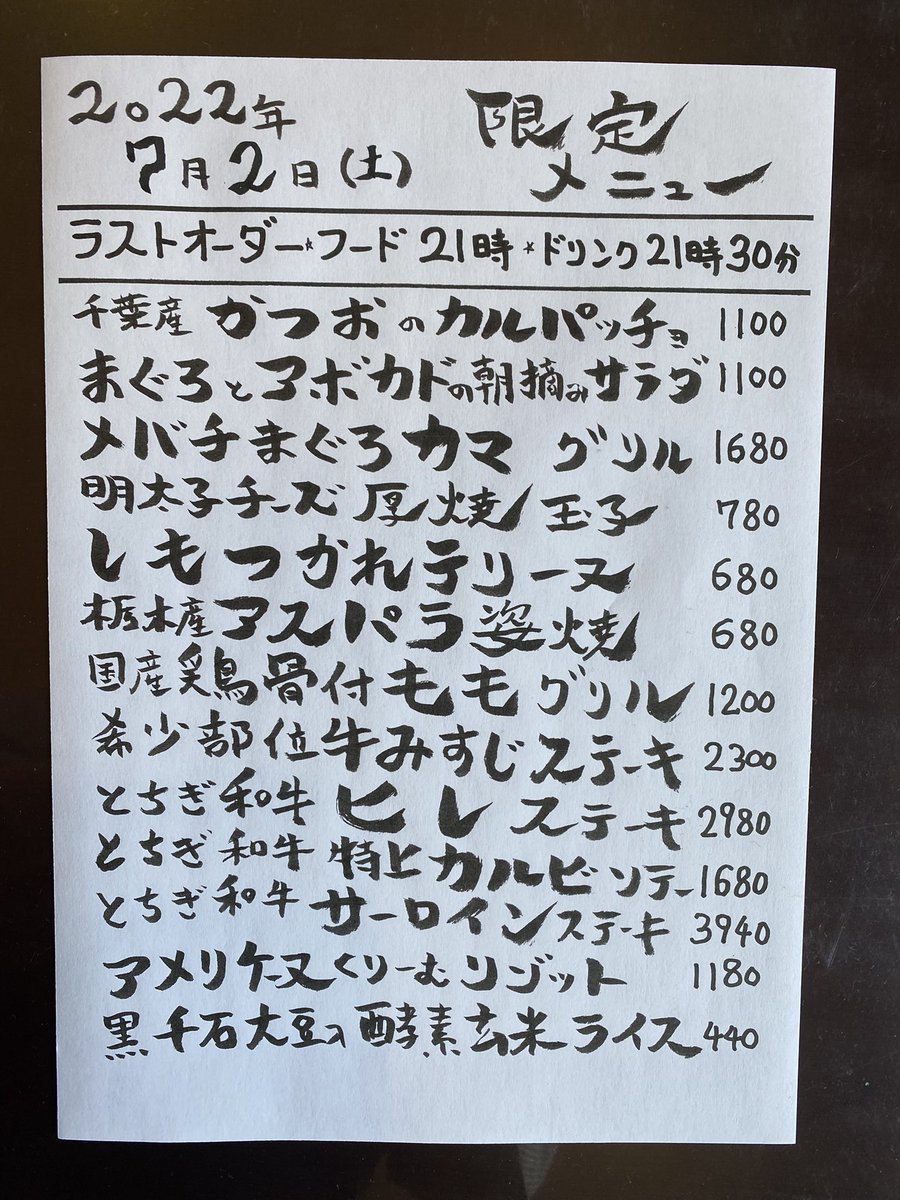 2022年 限定
7月2日(土) メニュー
ラストオーダー*フード 21時*ドリンク21時30分
千葉産 かつおのカルパッチョ 1100
まぐろとアボカドの朝摘みサラダ 1100
メバチまぐろカマ グリル 1680
明太子チーズ厚焼玉子 780
しもつかれテリーヌ 680
栃木産アスパラ姿焼 680
国産鶏骨付ももグリル 1200
希少部位牛みすじステーキ 2300
とちぎ和牛 ヒレステーキ 2980
とちぎ和牛 特上カルビソテー 1680
とちぎ和牛 サーロインステーキ 3940
アメリケーヌくりーむリゾット 1180
黒千石大豆入酵素玄米ライス 440